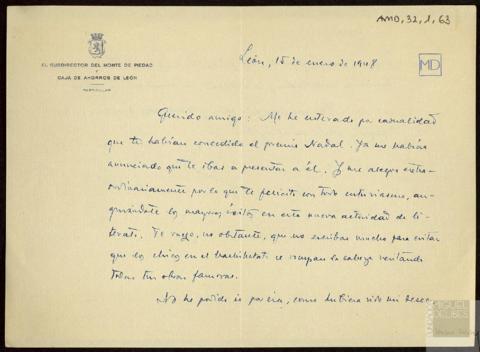 AMD, 32, 1, 63
EL SUBDIRECTOR DEL MONTE DE PIEDAD
Y
CAJA DE AHORROS DE LEÓN
PARTICULAR
León, 15 de enero de 1948
MD
Querido amigo: Me he enterado por casualidad
que te habían concedido el premio Nadal. Ya me habías
anunciado que te ibas a presentar a él. Y me alegro extra-
ordinariamente por lo que te felicito con todo entusiasmo, au-
gurándote los mayores éxitos en esta nueva actividad de li-
terato. Te ruego, no obstante, que no escribas mucho para evitar
que los chicos en el bachillerato se rompan la cabeza
todas tus obras famosas.
No he podido ir por esa, como hubiera sido mi deseo
MIGUEL
DELIBES